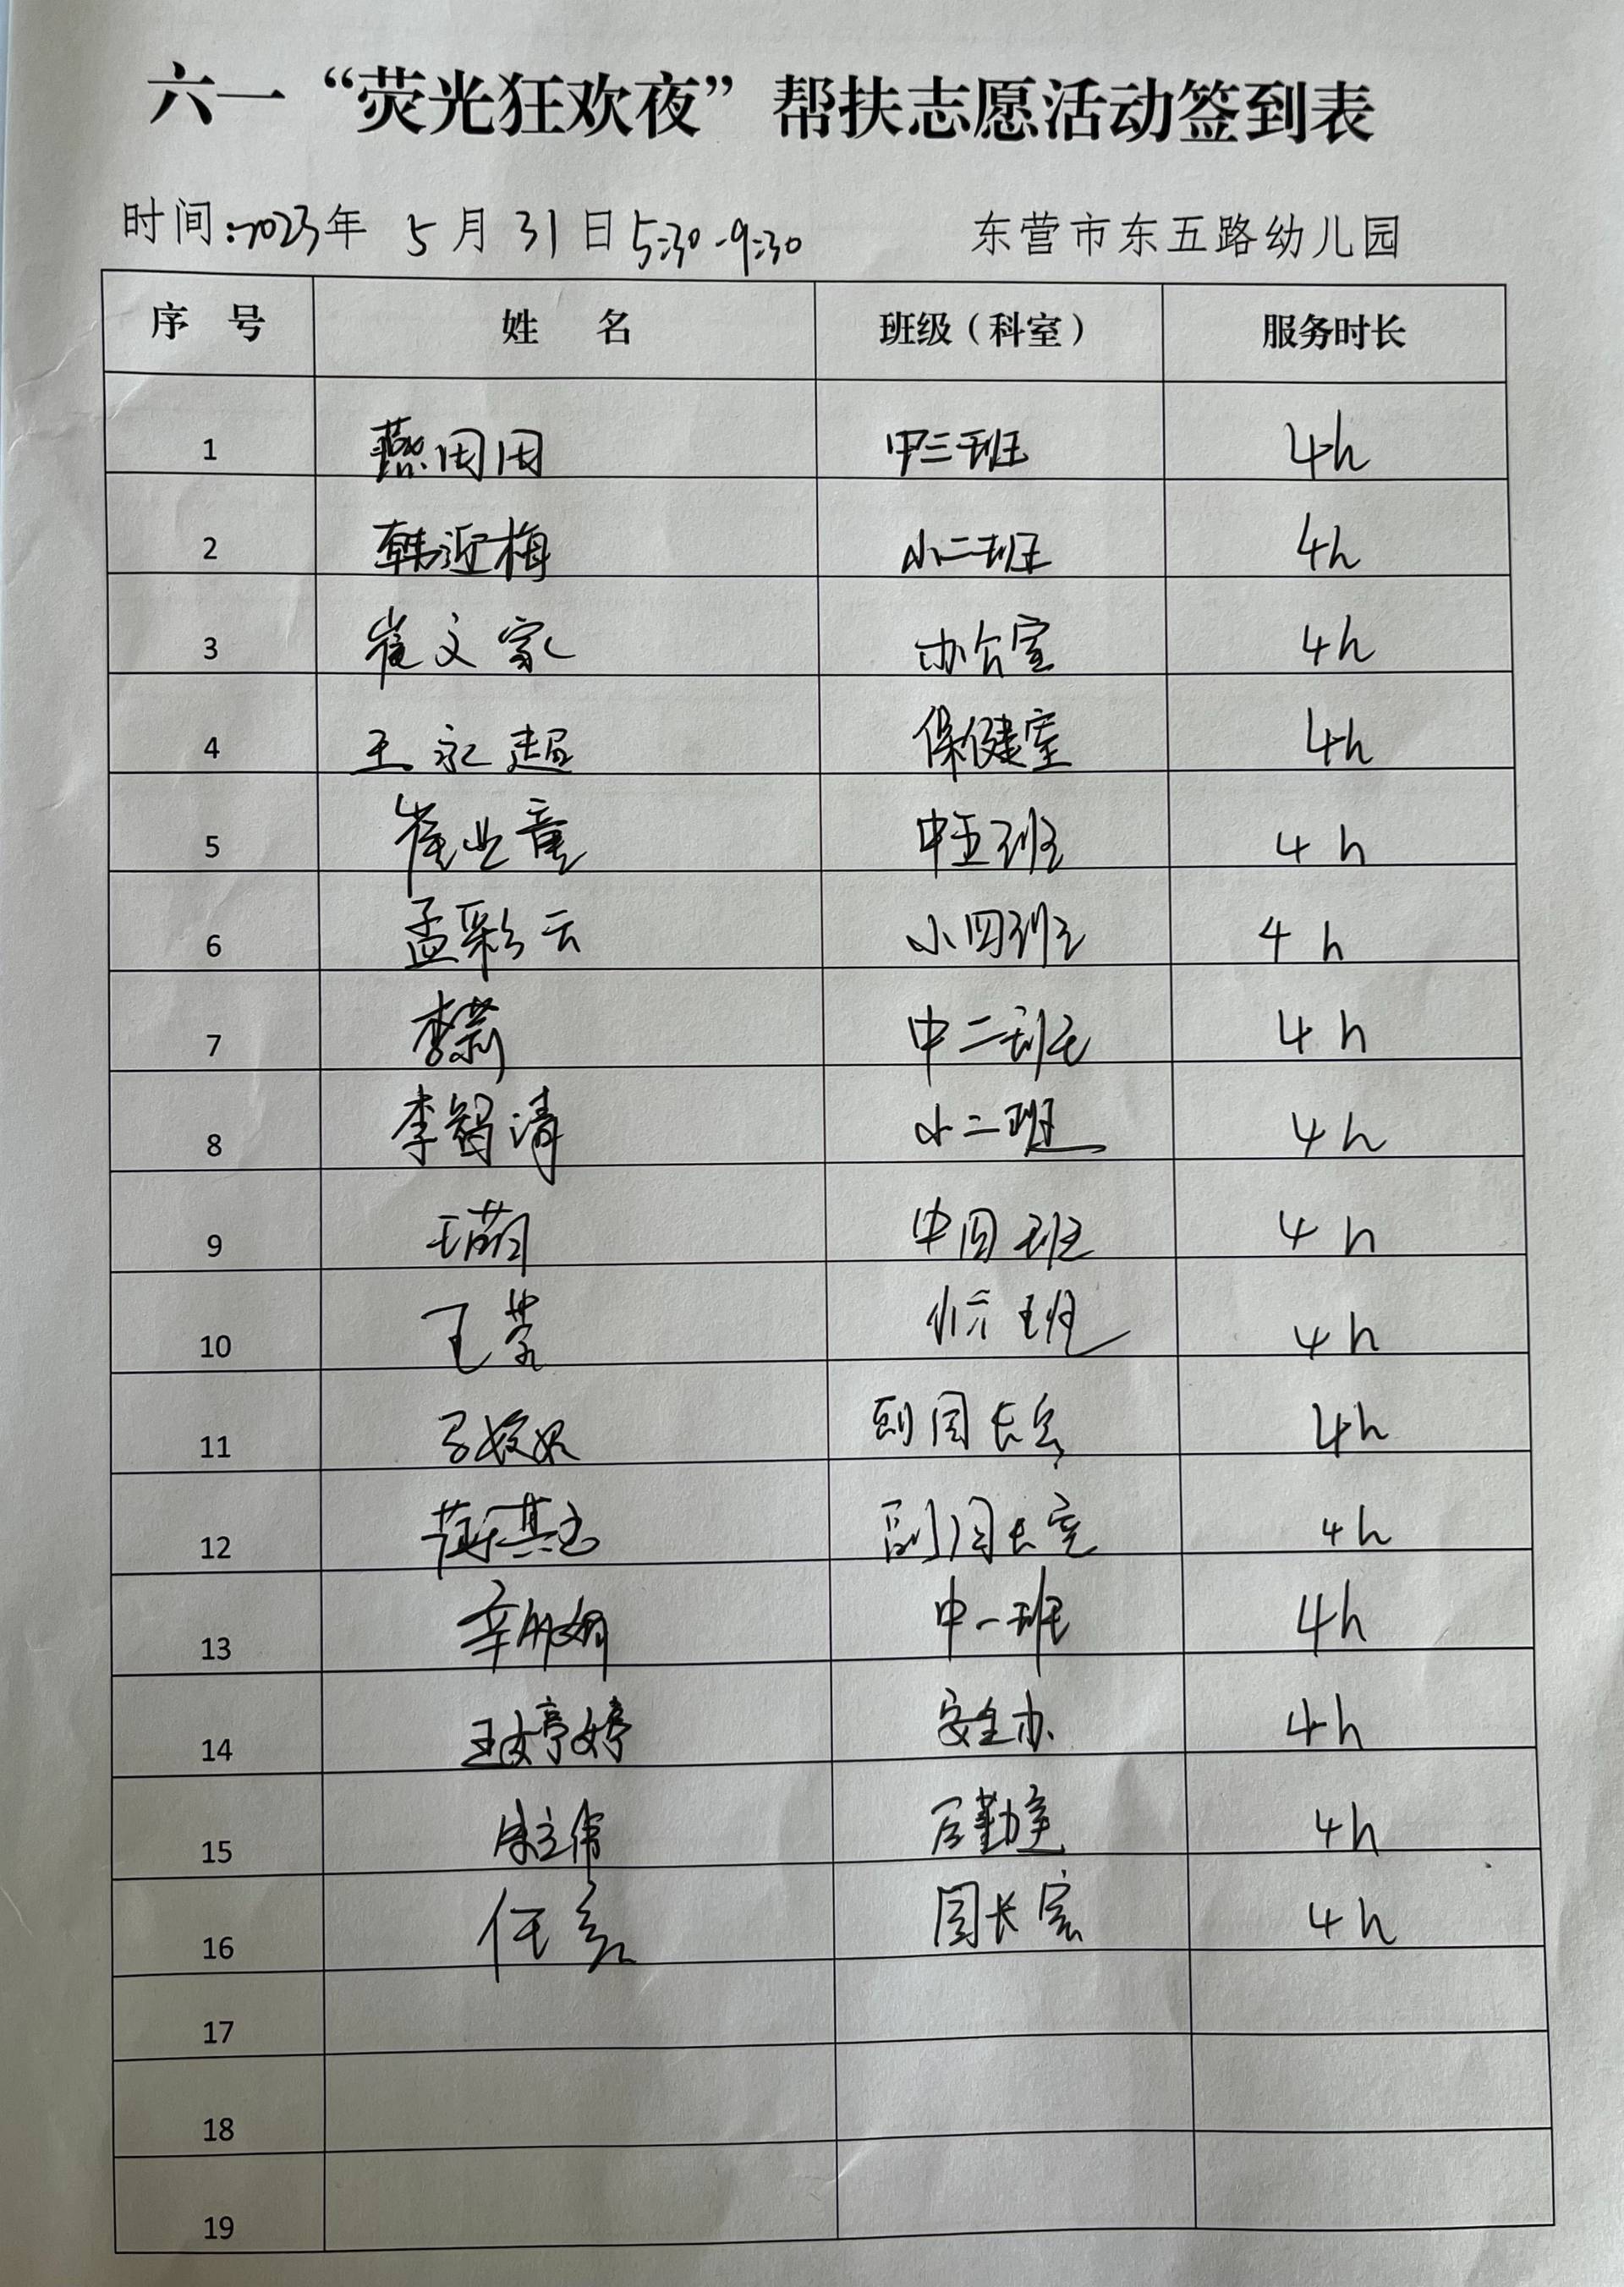 六一“荧光狂欢夜”帮扶志愿活动签到表
时间:2023年 5月31日5:30-9:30 东营市东五路幼儿园
序 号 姓 名 班级（科室） 服务时长
1 燕团团 中三班 4h
2 韩近梅 小二班 4h
3 崔文家 办公室 4h
4 王永超 保健室 4h
5 崔业童 中五班 4h
6 孟彩云 小四班 4h
7 李莉 中二班 4h
8 李 清 小二班 4h
9 王萌 中四班 4h
10 王 班 4h
11 副园长室 4h
12 副园长室 4h
13 辛 娟 中一班 4h
14 王婷婷 安全办 4h
15 后勤室 4h
16 任 园长室 4h
17
18
19